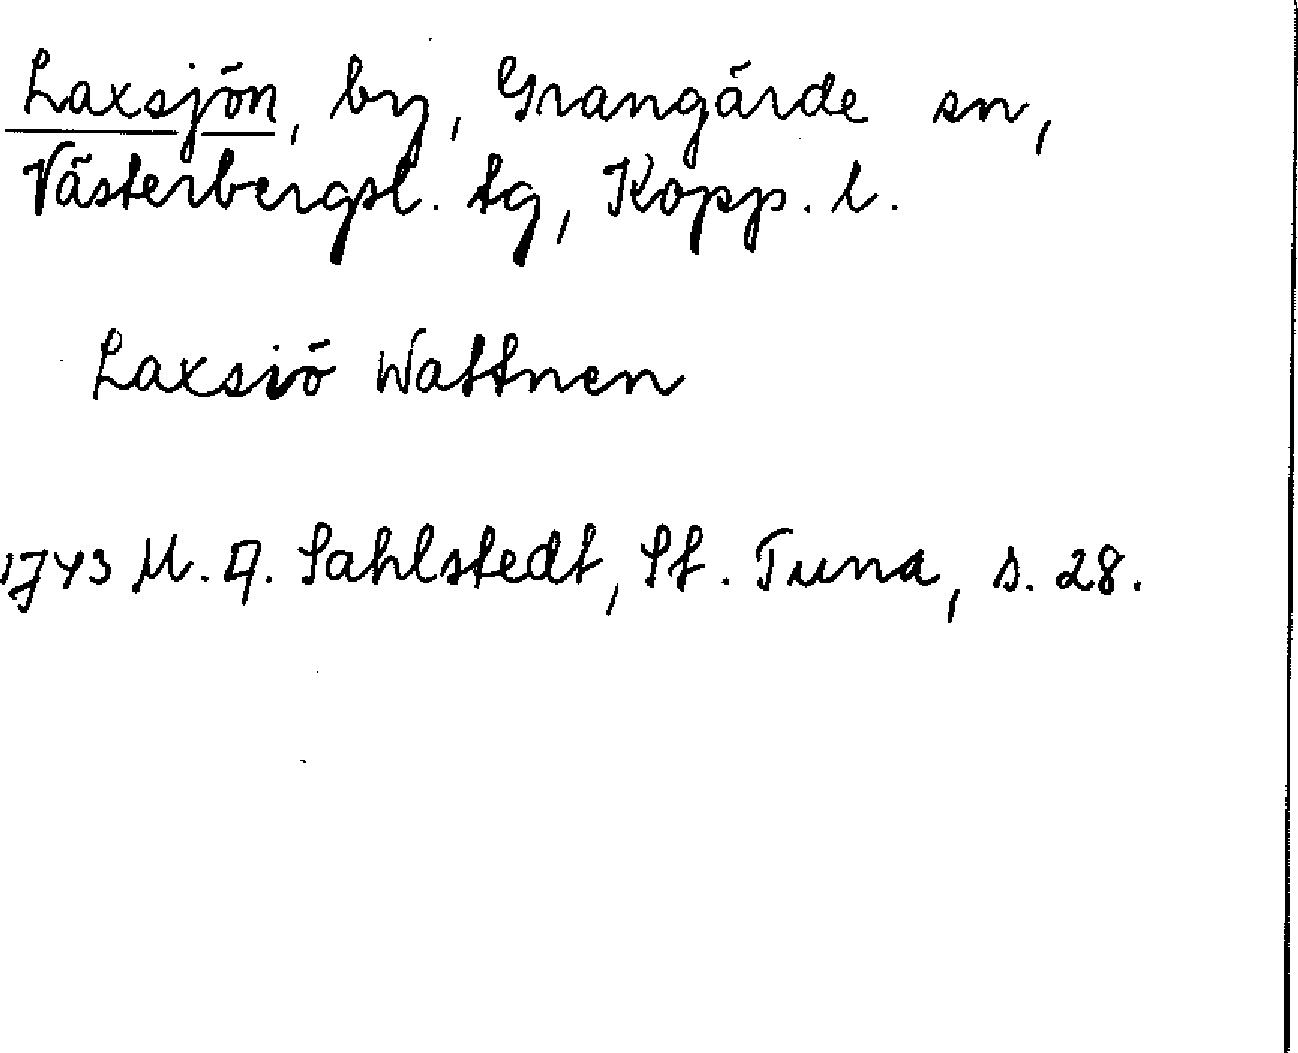 Laxsjön, by, Grangärde sn,
Västerbergsl. tg, Kopp. l.
Laxsiö Wattnen
1743 M. A. Sahlstedt, St. Tuna, s. 28.